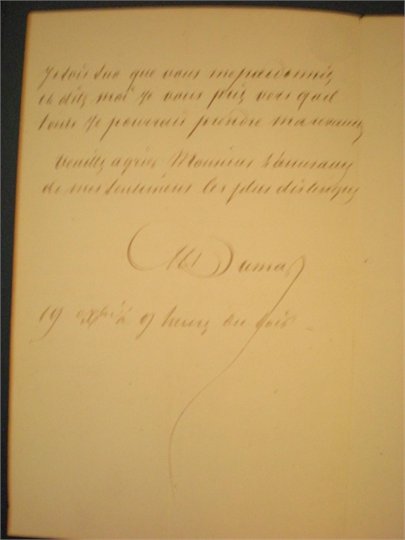 que vous me pardonnez
et dites moi je vous prie vers quel
je pourrais prendre ma revanche
Veuillez agréer Monsieur l'assurance
de mes sentiments les plus distingués
Dumas
19 à 9 heures du soir